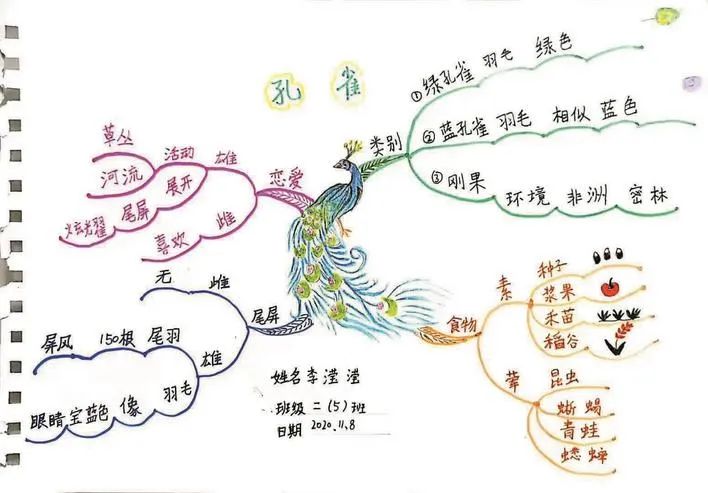 孔雀
类别
①绿孔雀 羽毛 绿色
②蓝孔雀 羽毛 相似 蓝色
③刚果 环境 非洲 密林
恋爱
雄
活动
草丛
河流
展开
尾屏
炫耀
雌
喜欢
尾屏
雌
无
雄
尾羽
150根
屏风
羽毛
像
宝蓝色
眼睛
食物
素
种子
浆果
禾苗
稻谷
荤
昆虫
蜥蜴
青蛙
蟋蟀
姓名 李滢滢
班级 二(5)班
日期 2020.11.8